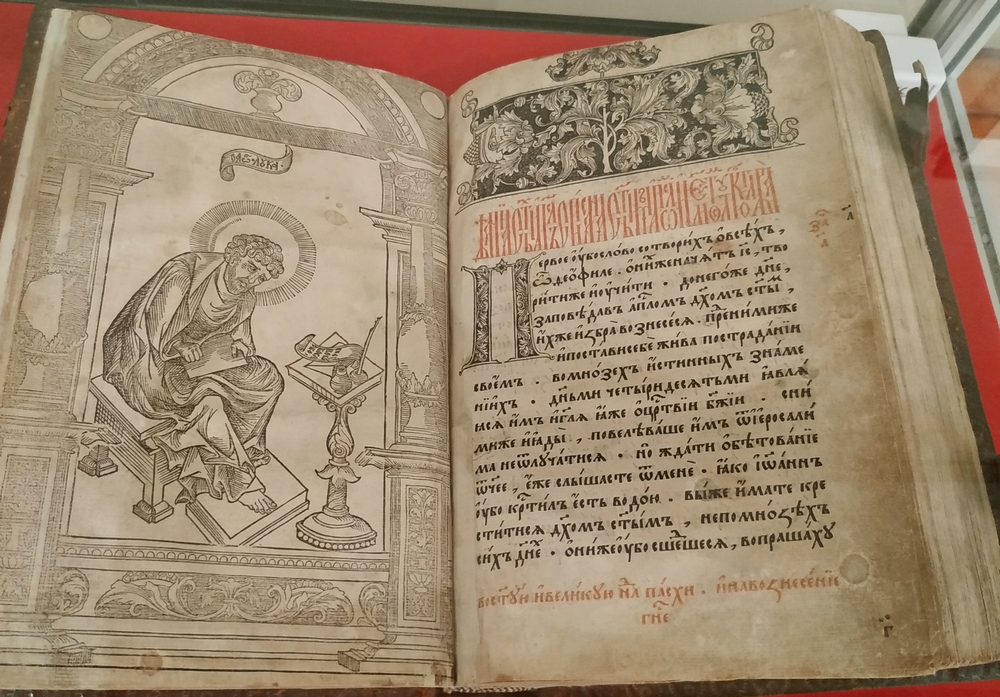 пе́рвое ᲂу҆́бо сло́во сотвори́хъ ѻ҆ всѣ́хъ,
ѽ ѳео́филе . ѻ҆ ни́хже нача́тъ і҆с҃, тво
ри́ти же и҆ ᲂу҆чи́ти . до него́же дн҃е,
заповѣ́давъ а҆пⷭ҇ломъ дх҃омъ ст҃ы́м
и҆́хже и҆збра̀ вознесе́сѧ . пред ни́ми же
и҆ поста́ви себѐ жи́ва по страда́нїи
свое́мъ . во мно́зехъ и҆́стинныхъ зна́ме
нїихъ . дн҃ьми четы́ридесѧтьми ꙗ҆влѧ́
ѧсѧ и҆́мъ и҆ гл҃ѧ ꙗ҆́же ѻ҆ црⷭ҇твїи бж҃їи . с ни́
ми же и҆ ꙗ҆ды̀ , повелѣва́ше и҆̀мъ ѿ і҆еросали́
ма не ѿлуча́тисѧ . но жда́ти ѻ҆бѣтова́нїе
ѻ҆́ч҃ее , є҆́же слы́шасте ѿ менє̀ . ꙗ҆́ко і҆ѡ҆а́ннъ
ᲂу҆́бо крⷭ҇ти́лъ є҆́сть водо́ю . вы́ же и҆́мате кре
сти́тисѧ дх҃омъ ст҃ы́мъ , не по мно́ѕѣхъ
си́хъ дн҃е . ѻ҆ни́ же ᲂу҆́бо сше́дшесѧ , вопраша́хꙋ
во ст҃ꙋ́ю и҆ вели́кꙋю н҃лю па́схи . и҆ на вознесе́нїе
гн҃е
г҃